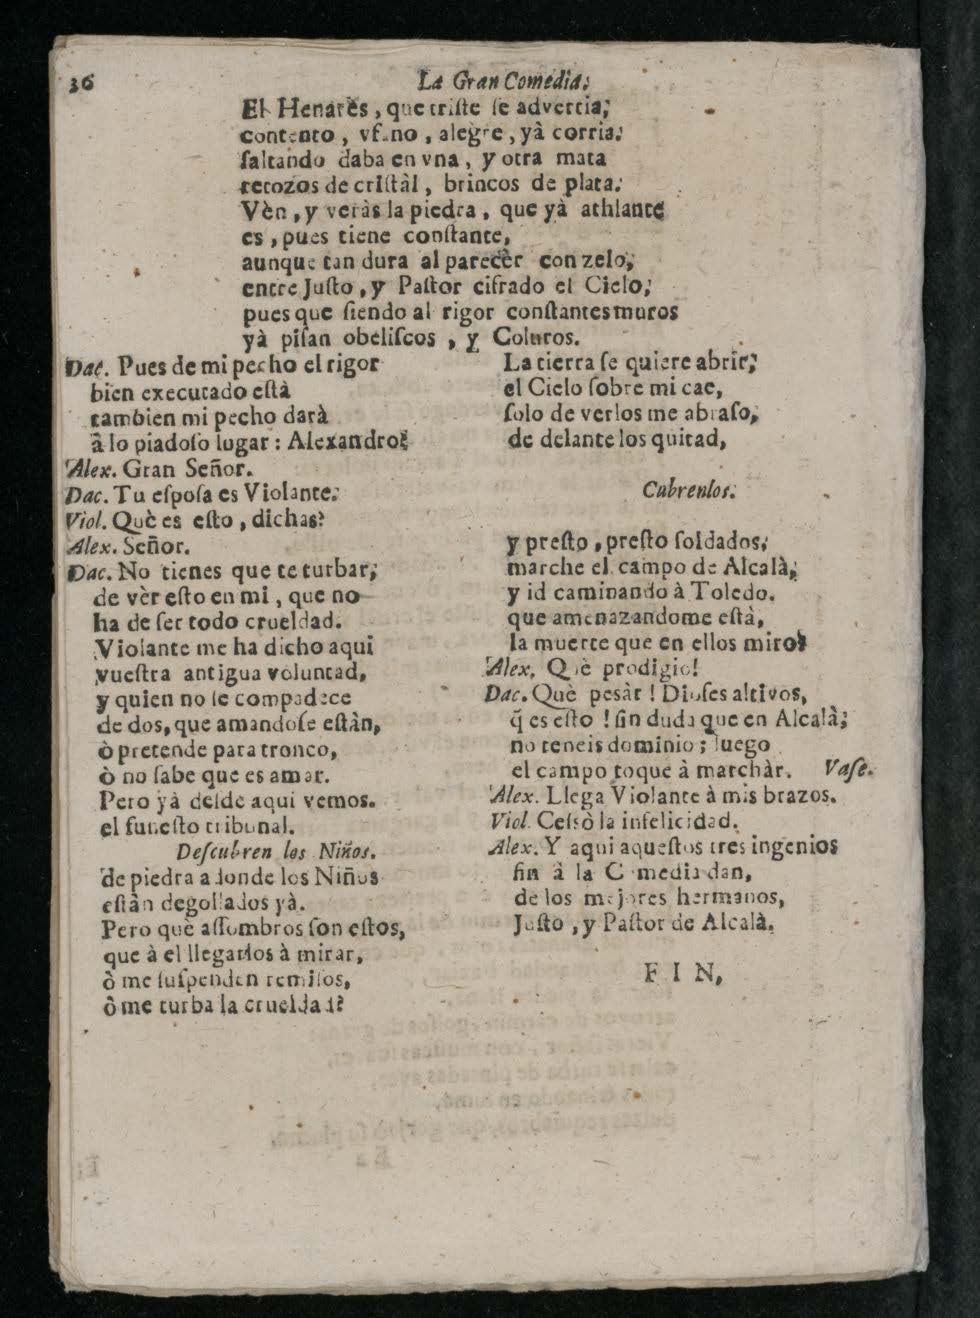 36
La Gran Comedia:
El Henarès, que triſte ſe advertia;
contento, vfano, alegre, yà corria:
ſaltando daba en vna, y otra mata
retozos de criſtàl, brincos de plata:
Vèn, y veràs la piedra, que yà athlante
es, pues tiene conſtante,
aunque tan dura al parecèr con zelo;
entre Juſto, y Paſtor cifrado el Cielo;
pues que ſiendo al rigor conſtantes muros
yà piſan obeliſcos, y Coluros.
Dac. Pues de mi pecho el rigor
bien executado eſtà
tambien mi pecho darà
à lo piadoſo lugar: Alexandro?
Alex. Gran Señor.
Dac. Tu eſpoſa es Violante:
Viol. Què es eſto, dichas?
Alex. Señor.
Dac. No tienes que te turbar;
de vèr eſto en mi, que no
ha de ſer todo crueldad.
Violante me ha dicho aqui
vueſtra antigua voluntad,
y quien no ſe compadece
de dos, que amandoſe eſtàn,
ò pretende para tronco,
ò no ſabe que es amar.
Pero yà deſde aqui vemos.
el funeſto tribunal.
Deſcubren los Niños.
de piedra adonde los Niños
eſtàn degollados yà.
Pero què aſſombros ſon eſtos,
que à el llegarlos à mirar,
ò me ſuſpenden remiſos,
ò me turba la crueldad?
La tierra ſe quiere abrir;
el Cielo ſobre mi cae,
ſolo de verlos me abraſo,
de delante los quitad,
Cubrenlos:
y preſto, preſto ſoldados;
marche el campo de Alcalà;
y id caminando à Toledo.
que amenazandome eſtà,
la muerte que en ellos miro!
Alex. Què prodigio!
Dac. Què pesàr! Dioſes altivos,
q̃ es eſto! ſin duda que en Alcalà;
no teneis dominio; luego
el campo toque à marchàr. Vaſe.
Alex. Llega Violante à mis brazos.
Viol. Ceſsò la infelicidad.
Alex. Y aqui aqueſtos tres ingenios
fin à la Comedia dan,
de los mejores hermanos,
Juſto, y Paſtor de Alcalà.
FIN,